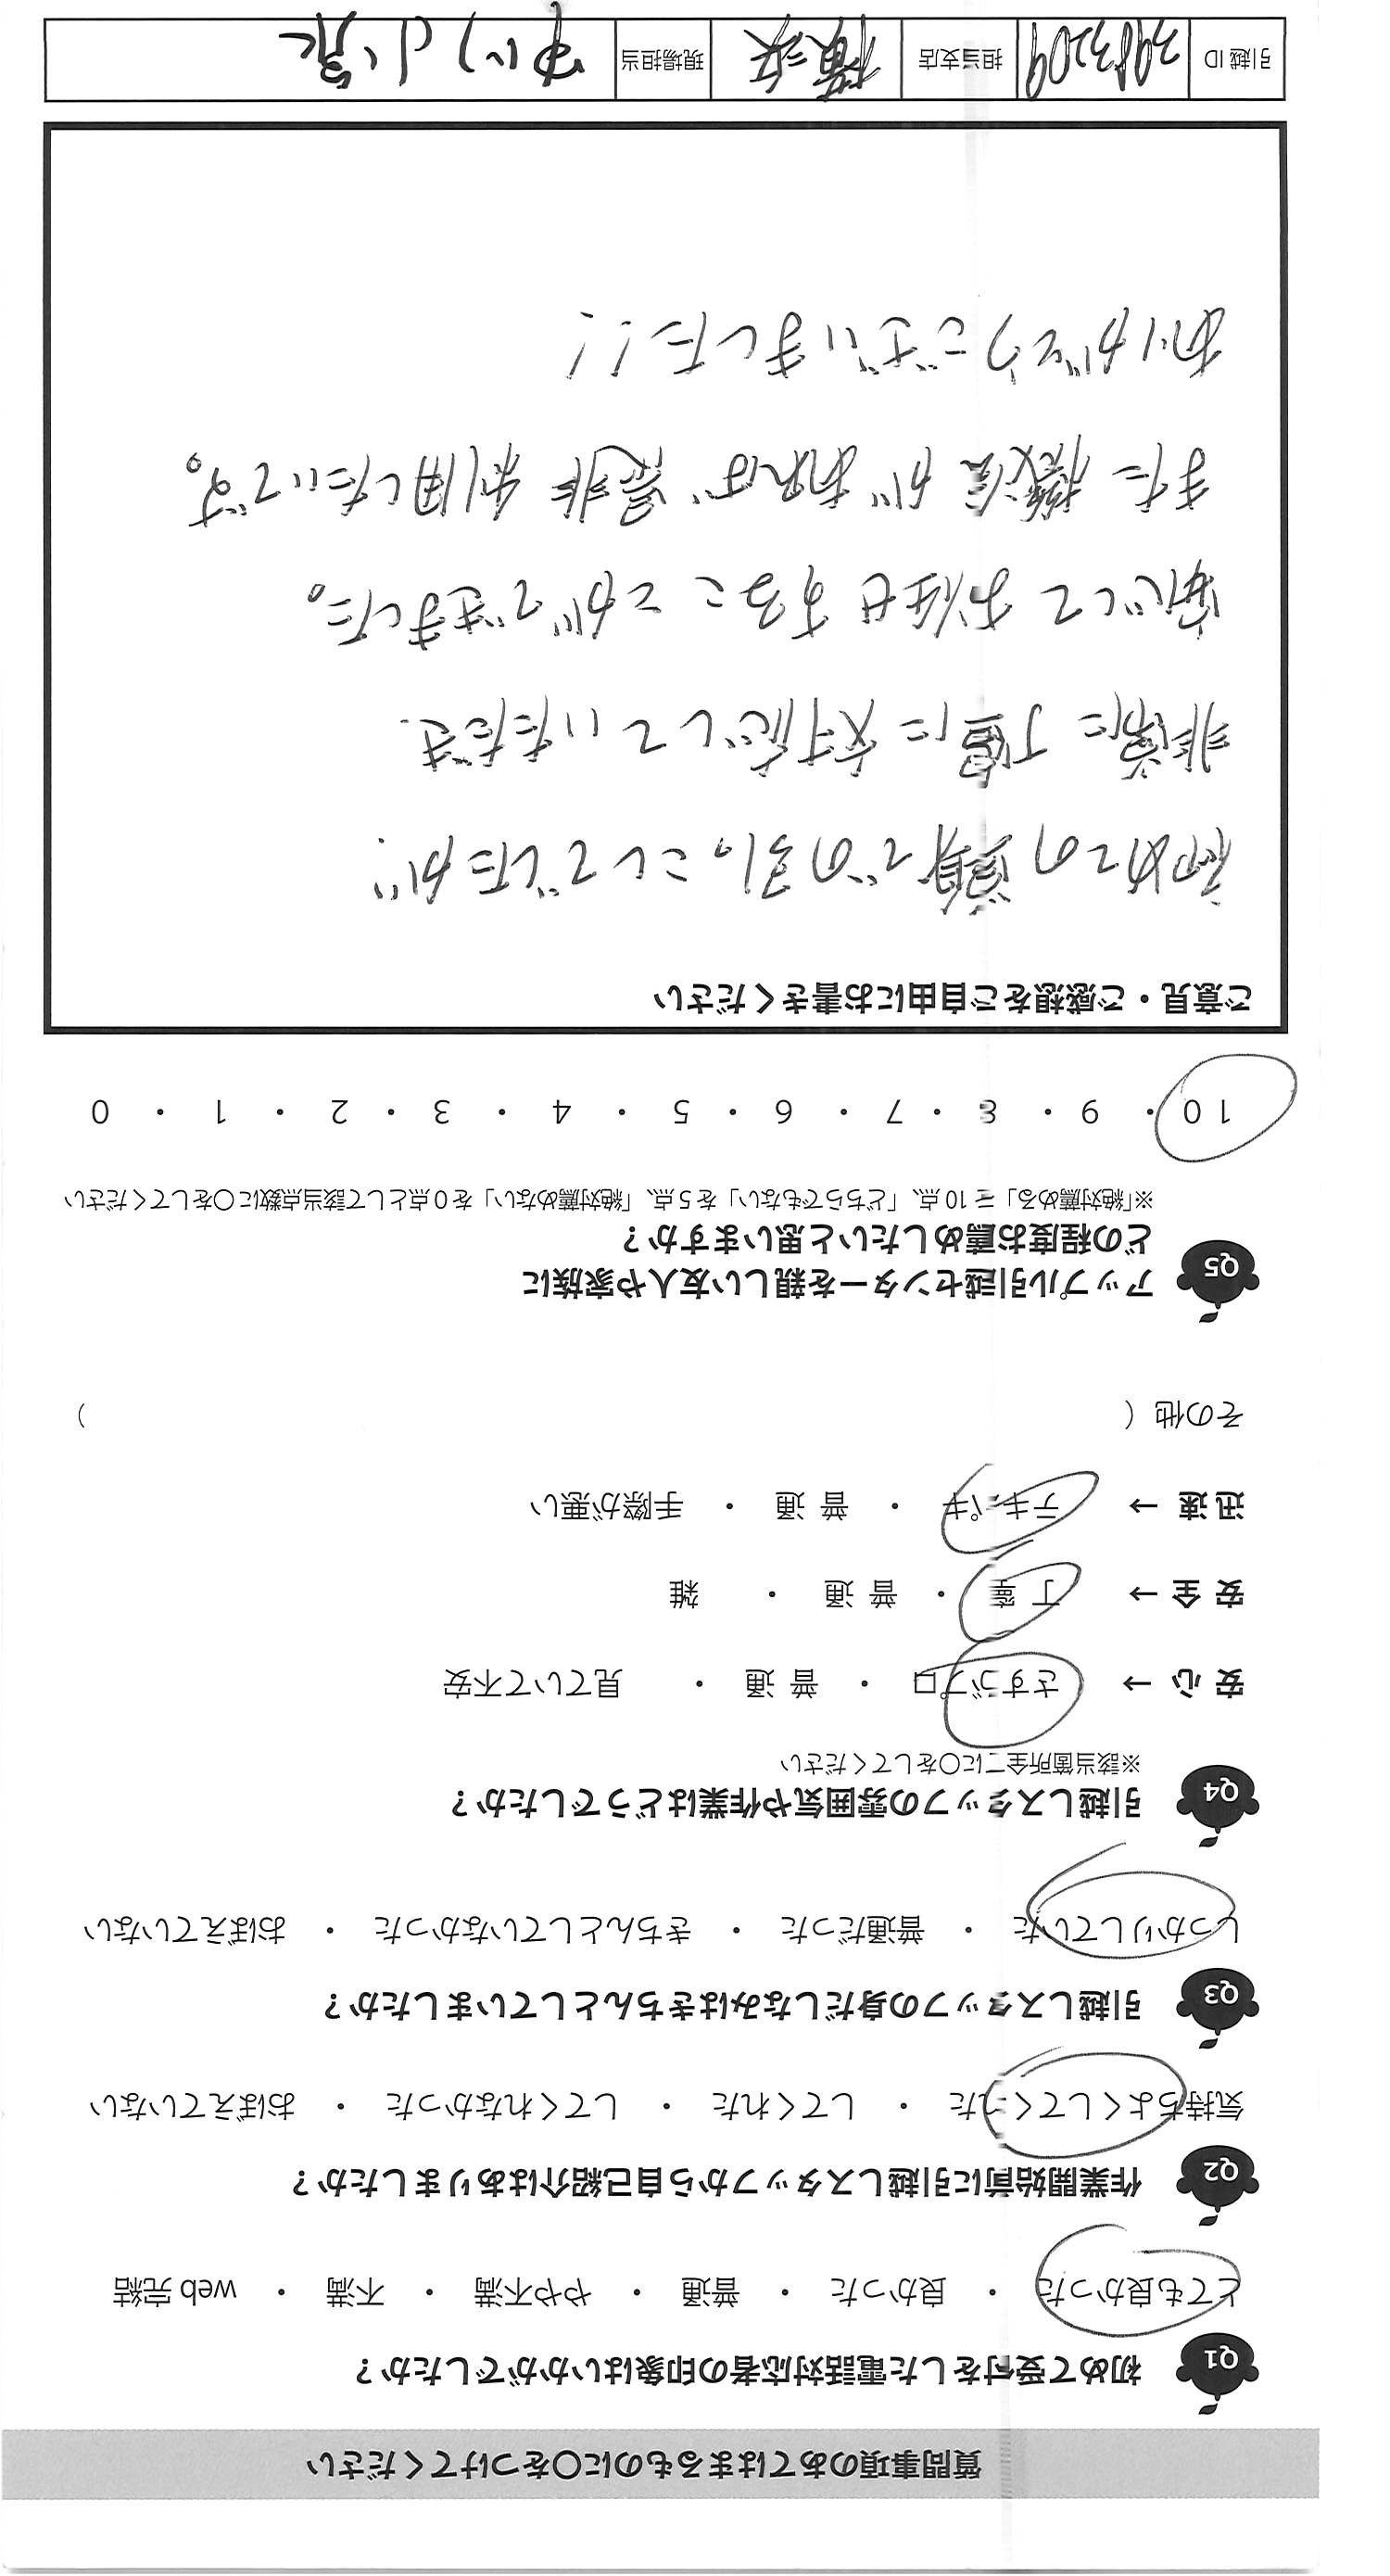 質問事項のあてはまるものに〇をつけてください
Q1 初めて受付をした電話対応者の印象はいかがでしたか？
とても良かった ・ 良かった ・ 普通 ・ やや不満 ・ 不満 ・ web 完結
Q2 作業開始前に引越しスタッフから自己紹介はありましたか？
気持ちよくしてくれた ・ してくれた ・ してくれなかった ・ おぼえていない
Q3 引越しスタッフの身だしなみはきちんとしていましたか？
しっかりしていた ・ 普通だった ・ きちんとしていなかった ・ おぼえていない
Q4 引越しスタッフの雰囲気や作業はどうでしたか？
※該当箇所全てに〇をしてください
安 心 → さすがプロ ・ 普 通 ・ 見ていて不安
安 全 → 丁 寧 ・ 普 通 ・ 雑
迅 速 → テキパキ ・ 普 通 ・ 手際が悪い
その他 （ ）
Q5 アップル引越センターを親しい友人や家族に
どの程度お薦めしたいと思いますか？
※「絶対薦める」＝ 10 点、「どちらでもない」を 5 点、「絶対薦めない」を 0 点として該当点数に〇をしてください
10 ・ 9 ・ 8 ・ 7 ・ 6 ・ 5 ・ 4 ・ 3 ・ 2 ・ 1 ・ 0
ご意見・ご感想をご自由にお書きください
初めての単身での引っこしでしたが、
非常に丁寧に対応していただき
安心してお任せすることができました。
また機会があれば是非利用したいです。
ありがとうございました!!
引越 ID 3983209 担当支店 横浜 現場担当 中川 小泉